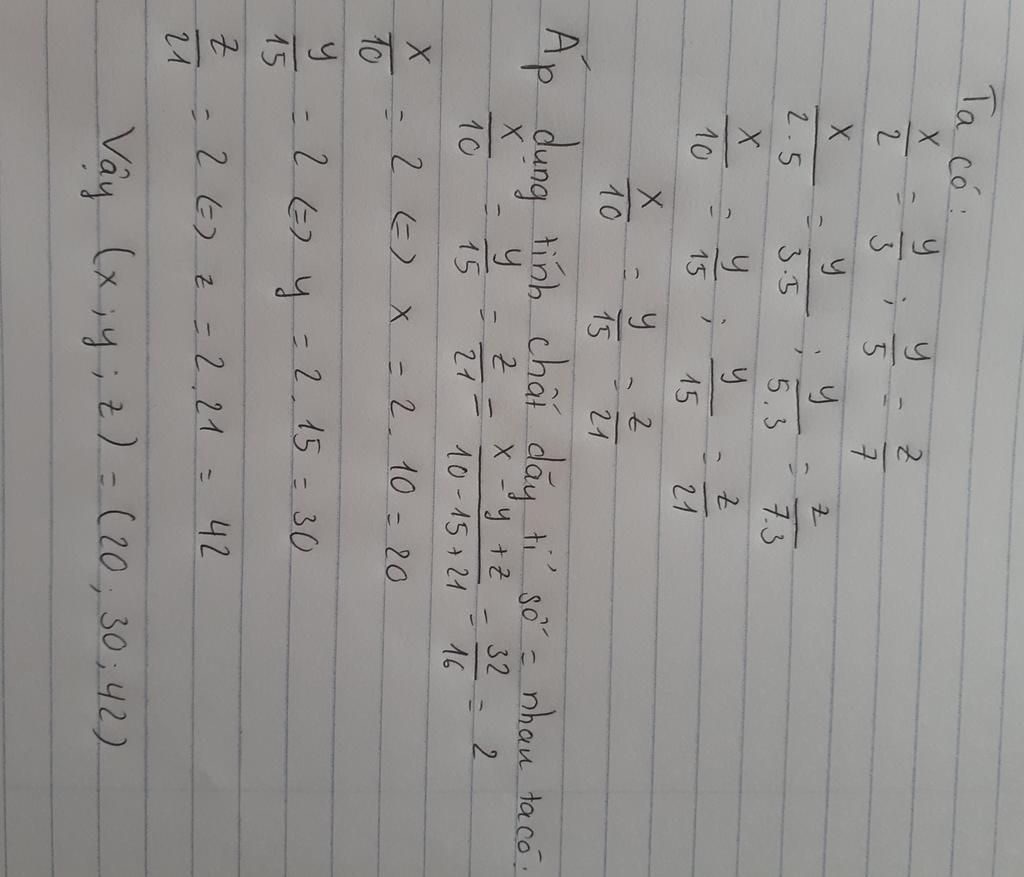 Ta có:
x/2 = y/3 ; y/5 = z/7
x/2.5 = y/3.5 ; y/5.3 = z/7.3
x/10 = y/15 ; y/15 = z/21
x/10 = y/15 = z/21
Áp dụng tính chất dãy tỉ số = nhau ta có:
x/10 = y/15 = z/21 = x-y+z/10-15+21 = 32/16 = 2
x/10 = 2 (=) x = 2.10 = 20
y/15 = 2 (=) y = 2.15 = 30
z/21 = 2 (=) z = 2.21 = 42
Vậy (x;y;z) = (20;30;42)